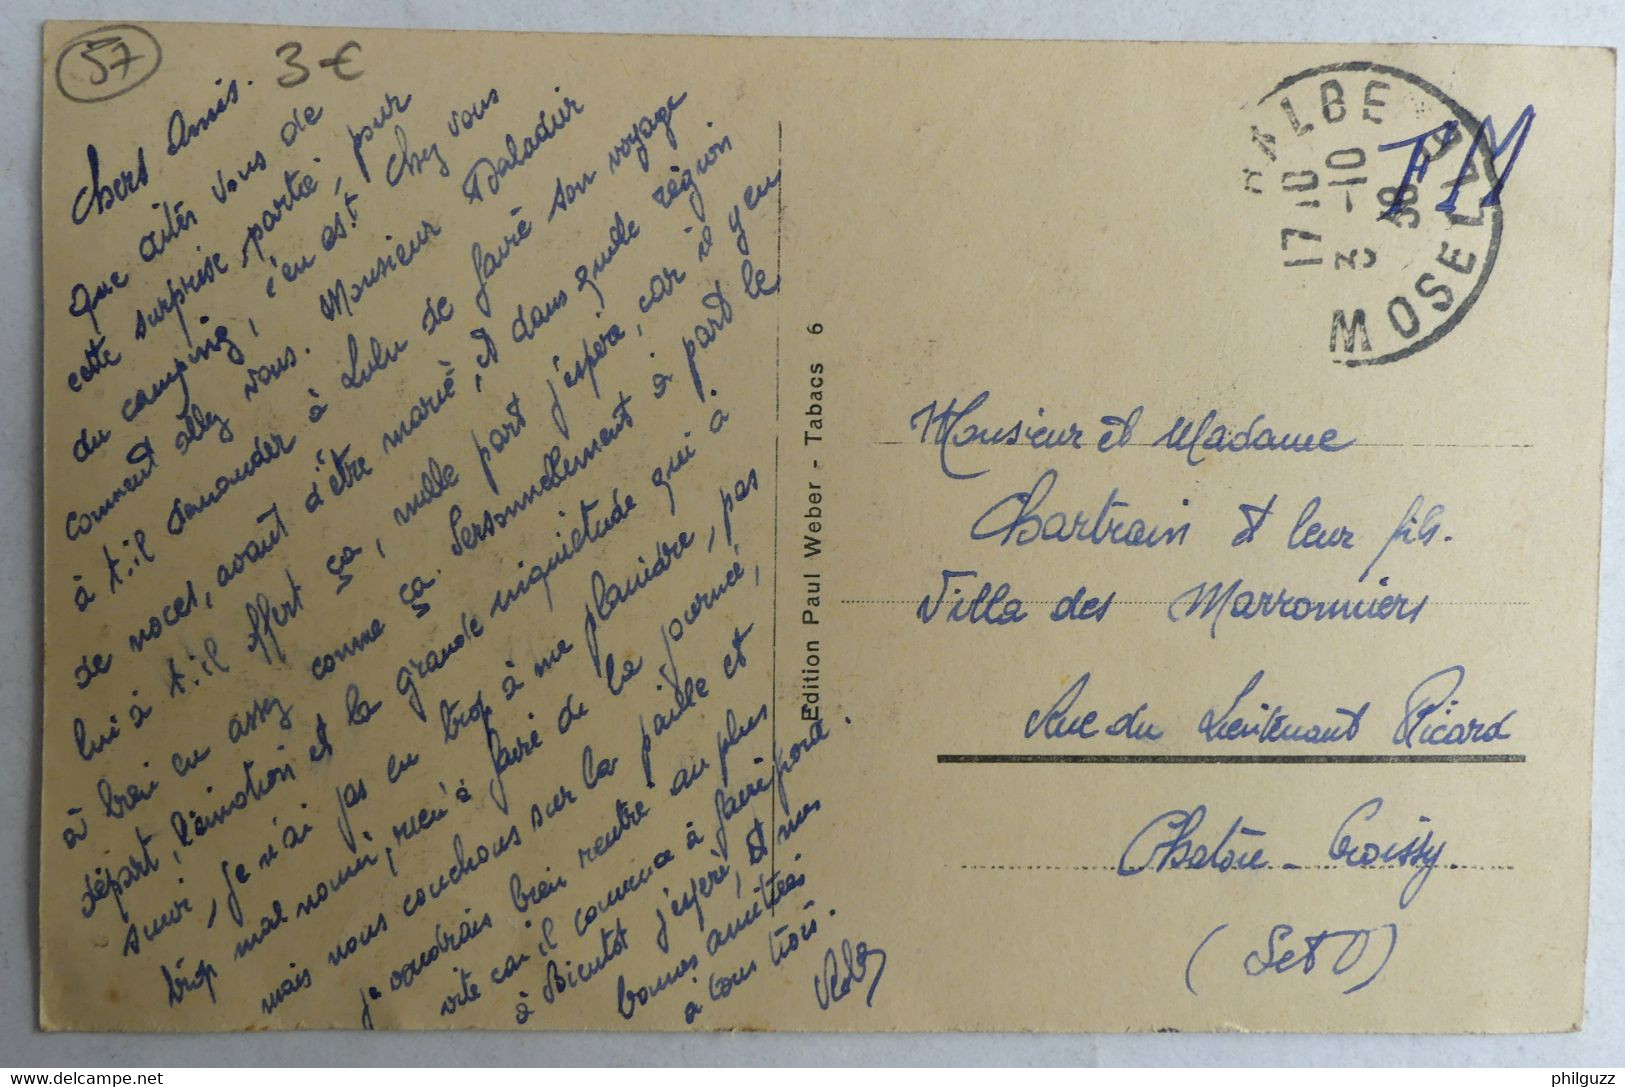 57
3 €
Chers Amis.
Que dites vous de
cette surprise partie, pur
du camping, c'en est. Chez vous
comment allez vous. Monsieur Daladier
à t-il demander à Lulu de faire son voyage
de noces, avant d'être marié, et dans quelle région
lui à t-il offert ça, nulle part j'espère, car il y en
à bien eu assez comme ça. Personnellement à part le
départ, l'émotion et la grande inquiétude qui à
suivi, je n'ai pas eu trop à me plaindre, pas
trop mal nourri, rien à faire de la journée,
mais nous couchons sur la paille et
je voudrais bien rentré au plus
vite car il commence à faire froid.
à Bientot j'espère, et mes
bonnes amitiés
à tous trois.
Edition Paul Weber - Tabacs 6
HALBE
MOSELLE
17 10
3 -10
38
FM
Monsieur et Madame
Chartrain et leur fils.
Villa des Marronniers
Rue du Lieutenant Ricard
Chatou - Croissy
(Set O)
philguzz